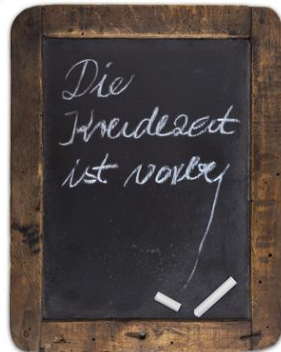 Die
Kreidezeit
ist vorbei